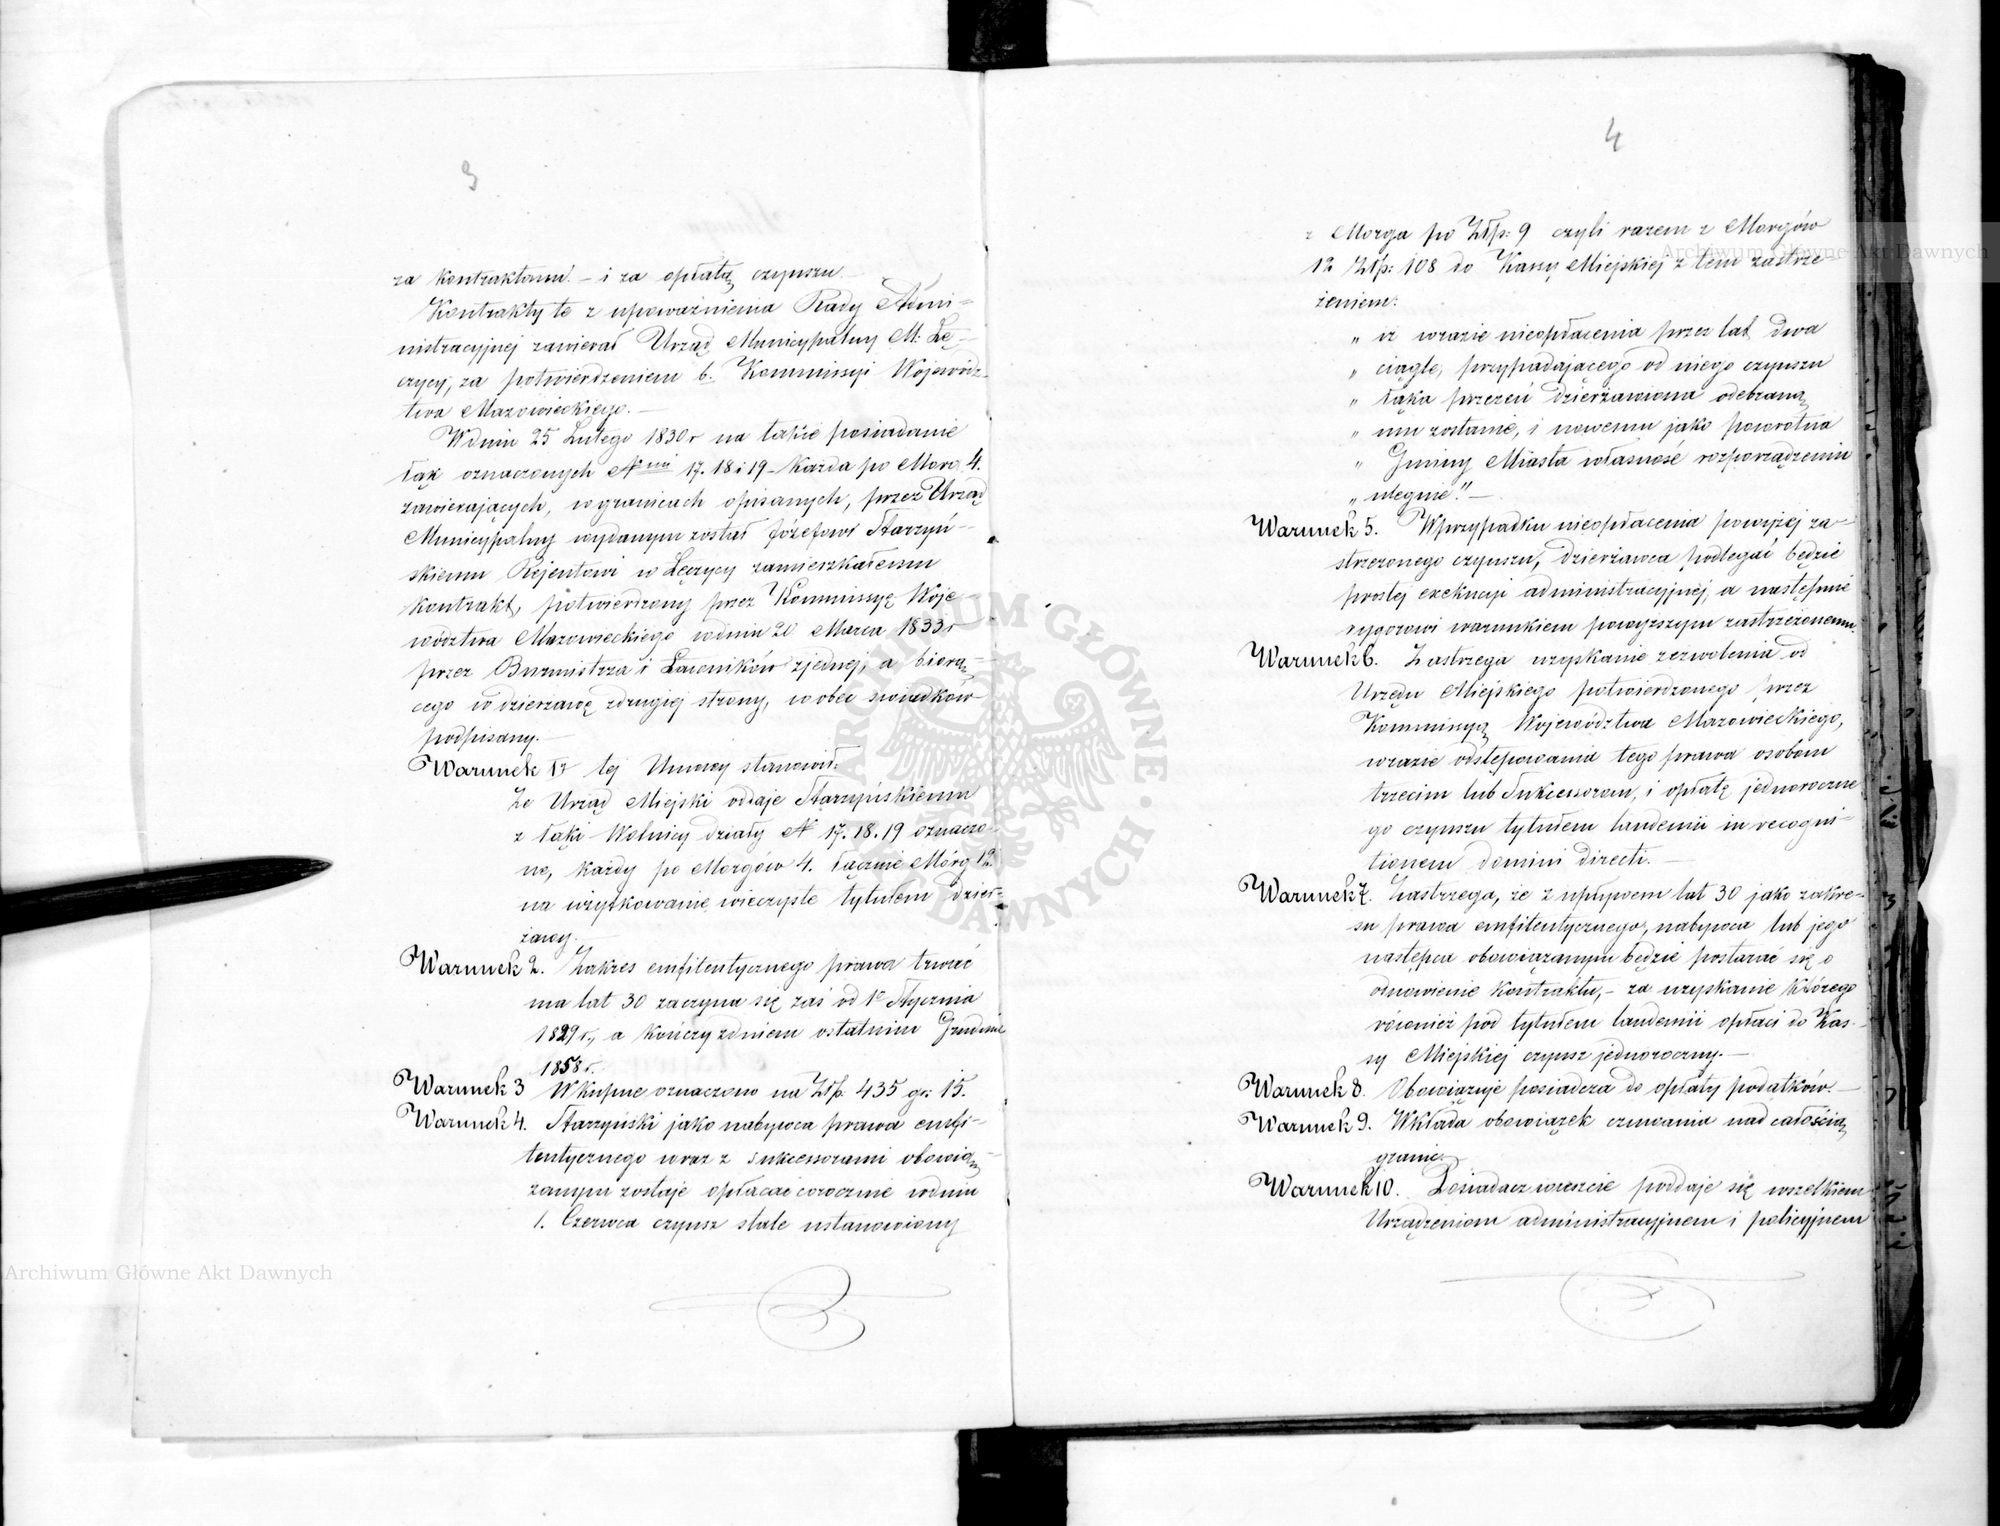 3
za kontraktami – i za opłatą czynszu
Kontrakty te z upoważnienia Rady Admi=
nistracyjnej zawierał Urząd Municypalny M: Łę=
czycy, za potwierdzeniem b. Kommissyi Wojewódz=
twa Mazowieckiego. –
W dniu 25 Lutego 1830 r na takie posiadanie
łąk oznaczonych Nrmi 17. 18 i 19 – Każda po Morg. 4.
zawierających, w granicach opisanych, przez Urząd
Municypalny wydanym został Józefowi Starzyń=
skiemu Rejentowi w Łęczycy zamieszkałemu
kontrakt, potwierdzony przez Kommissyę Woje=
wództwa Mazowieckiego w dniu 20 Marca 1833 r
przez Burmistrza i Ławników z jednej, a biorą=
cego w dzierżawę z drugiej strony, wobec świadków
podpisany. –
Warunek 1y tej Umowy stanowił:
Że Urząd Miejski oddaje Starzyńskiemu
z łąki Wolnicy działy N 17. 18. 19 oznaczo=
ne, każdy po Morgów 4. łącznie Mórg 12.
na użytkowanie wieczyste tytułem Dzier=
żawy. –
Warunek 2. Zakres emfiteutycznego prawa trwać
ma lat 30 zaczyna się zaś od 1o Stycznia
1829 r., a kończy z dniem ostatnim Grudnia
1858 r.
Warunek 3 Wkupne oznaczono na Złp. 435 gr: 15.
Warunek 4. Starzyński jako nabywca prawa emfi=
teutycznego wraz z sukcessorami obowią=
zanym zostaje opłacać corocznie w dniu
1. Czerwca czynsz stale ustanowiony
4
z Morga po Złp: 9 czyli razem z Morgów
12 Złp: 108 do Kassy Miejskiej z tem zastrze
żeniem:
„ iż w razie nieopłacenia przez lat dwa
„ ciągle, przypadającego od niego czynszu
„ łąka przezeń dzierżawiona odebraną
„ mu zostanie, i nowemu jako powrotna
„ Gminy Miasta własność rozporządzeniu
„ ulegnie." –
Warunek 5. W przypadku nieopłacenia powyżej za=
strzeżonego czynszu, dzierżawca podlegać będzie
prostej exekucyi administracyjnej, a następnie
rygorowi warunkiem powyższym zastrzeżonemu.
Warunek 6. Zastrzega uzyskanie zezwolenia od
Urzędu Miejskiego potwierdzonego przez
Kommissyą Województwa Mazowieckiego,
w razie odstępowania tego prawa osobom
trzecim lub Sukcessorom, i opłatę jednoroczne
go czynszu tytułem laudemii in recogni=
tionem domini directi. –
Warunek 7. Zastrzega, że z upływem lat 30 jako zakre=
su prawa emfiteutycznego, nabywca lub jego
następca obowiązanym będzie postarać się o
odnowienie kontraktu, – za uzyskanie którego
również pod tytułem laudemii opłaci do Kas=
sy Miejskiej czynsz jednoroczny. –
Warunek 8. Obowiązuje posiadacza do opłaty podatków. –
Warunek 9. Wkłada obowiązek czuwania nad całością
granic.
Warunek 10. Posiadacz wreszcie poddaje się wszelkiem
Urządzeniom administracyjnem i policyjnem
Archiwum Główne Akt Dawnych
Archiwum Główne Akt Dawnych
ARCHIWUM GŁÓWNE AKT DAWNYCH